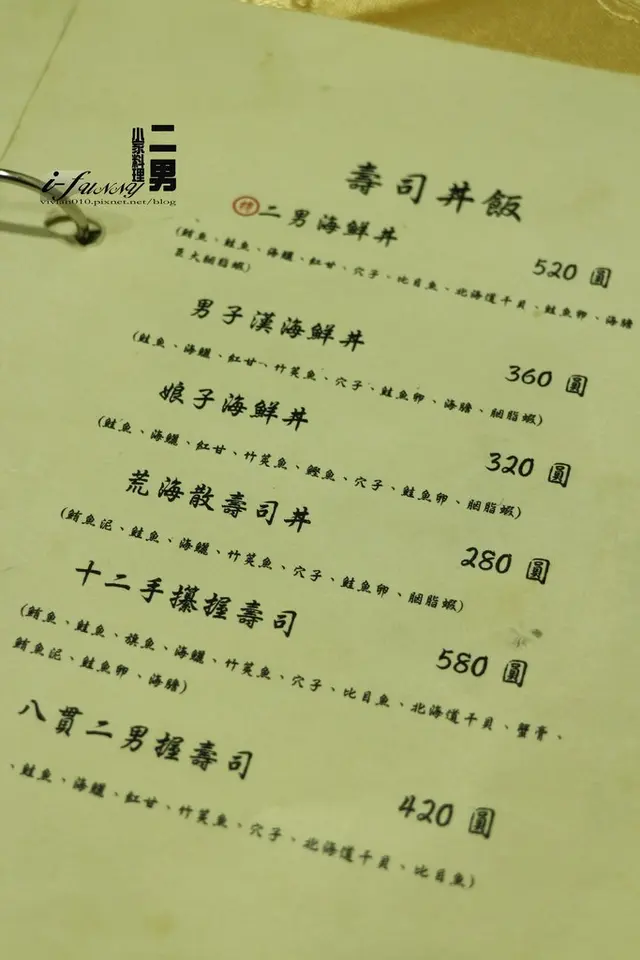 二男
小家料理
i-FUNNY
vivian010.pixnet.net/blog
壽司丼飯
特 二男海鮮丼 520 圓
(鮪魚、鮭魚、海鱺、紅甘、穴子、比目魚、北海道干貝、鮭魚卵、海膽
巨大胭脂蝦)
男子漢海鮮丼 360 圓
(鮭魚、海鱺、紅甘、竹筴魚、穴子、鮭魚卵、海膽、胭脂蝦)
娘子海鮮丼 320 圓
(鮭魚、海鱺、紅甘、竹筴魚、鰹魚、穴子、鮭魚卵、胭脂蝦)
荒海散壽司丼 280 圓
(鮪魚泥、鮭魚、海鱺、竹筴魚、穴子、鮭魚卵、胭脂蝦)
十二手攥握壽司 580 圓
(鮪魚、鮭魚、旗魚、海鱺、竹筴魚、穴子、比目魚、北海道干貝、蟹膏、
鮪魚泥、鮭魚卵、海膽)
八貫二男握壽司 420 圓
、鮭魚、海鱺、紅甘、竹筴魚、穴子、北海道干貝、比目魚)